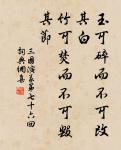 玉可碎而不可改
其白
竹可焚而不可毀
其節
三國演義第七十六回
詞典網集